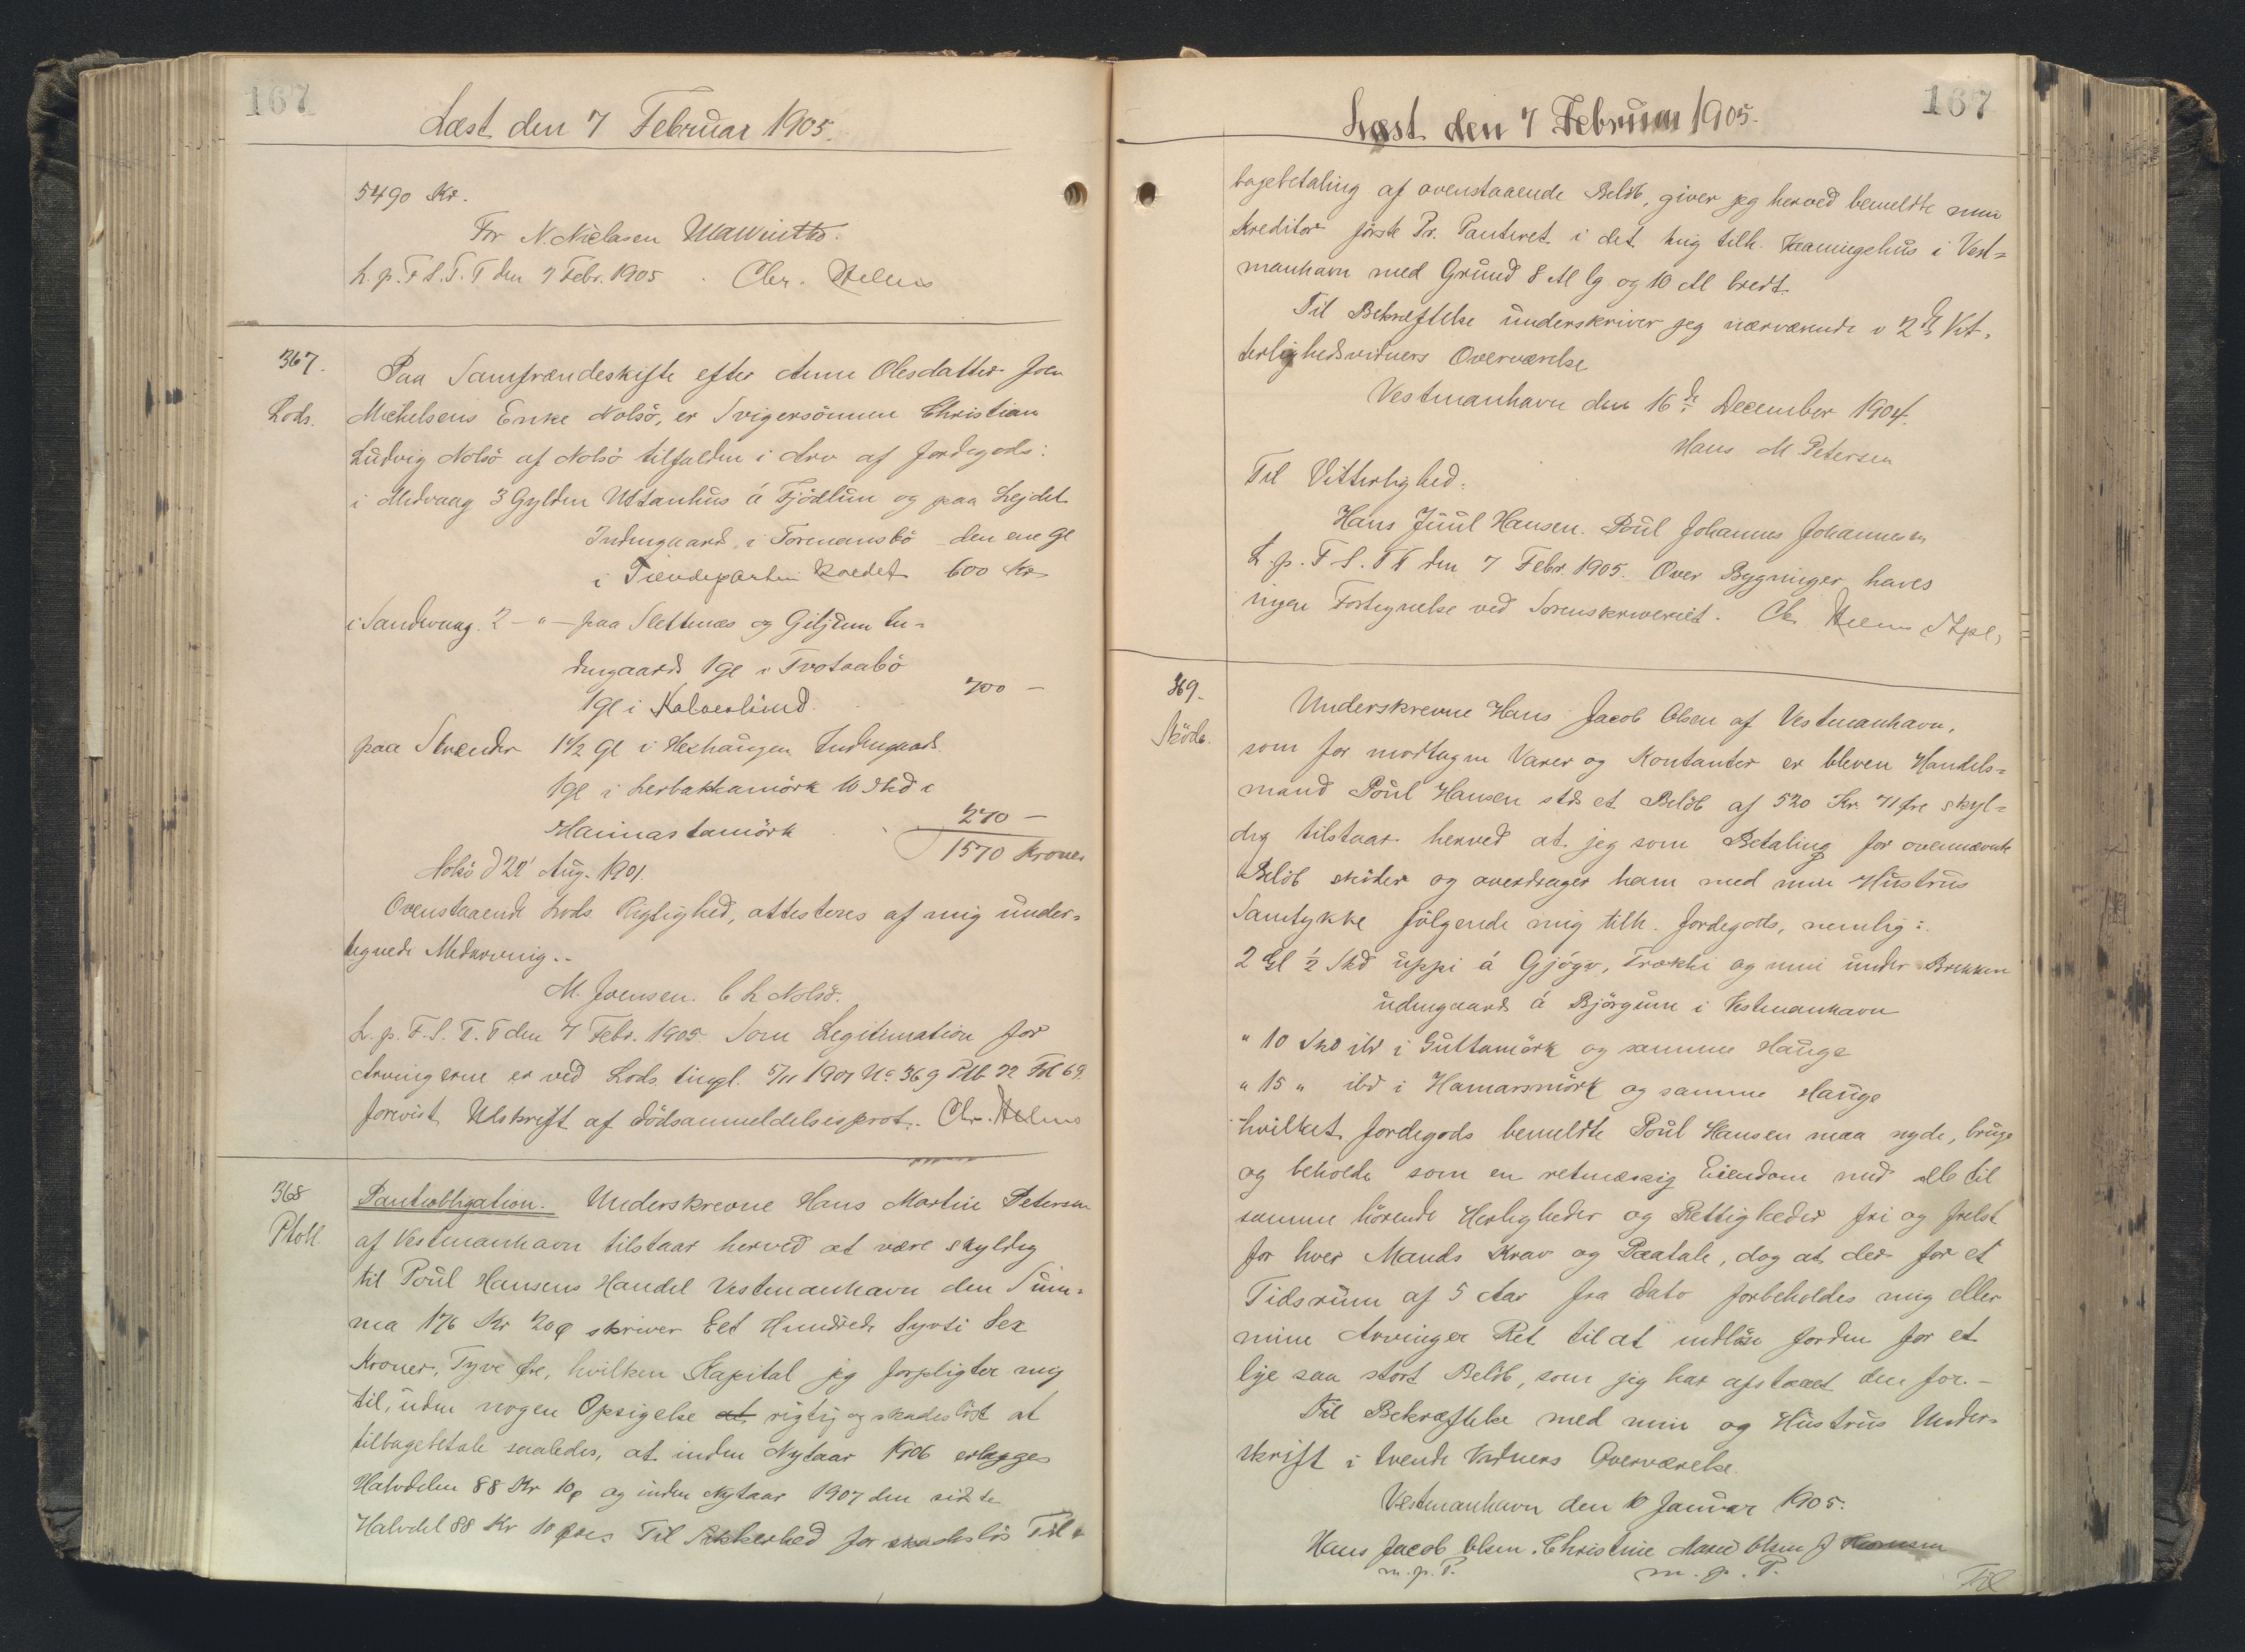 167
Læst den 7 Februar 1905.
5490 Kr.
For N. Nielasen
L. p. F. S. T. T den 7 Febr. 1905. Chr. Helms
367.
Lods.
Paa Samfrændeskifte efter Anne Olesdatter Joen
Michelsens Enke Nolsö, er Svigersönnen Christian
Ludvig Nolsö af Nolsö tilfalden i Arv af Jordegods:
i Midvaag 3 Gylden Uttanhus á Fjödlum og paa Lejdet
Indengaards i Tormansbö den ene Gl
i Tiendeparten Kredet 600 Kr
i Sandevaag 2 - " - paa Slettnæs og Giljum In=
dengaards 1 Gl i Trotaabö
1 Gl i Kalverlund. 700 -
paa Strender 1 1/2 Gl i Heshaugen Indengaards
1 gl i Lerbakkamörk 10 Skd i
Hamnastamörk 270 -
1570 Kroner
Nolsö d 21' Aug. 1901.
Ovenstaaende Lods Rigtighed, attesteres af mig under=
tegnede Medarving.-
M. Joensen. C L Nolsö.
L. p. F. S. T. T den 7 Febr. 1905. Som Legitimation for
Arvingerne er ved Lods tingl. 5/11 1901 No 369 Ptb 22 Fol 69
forevist Udskrift af dödsanmeldelsesprot. Chr. Helms
368
Ptobl.
Pantiobligation. Underskrevne Hans Martin Petersen
af Vestmanhavn tilstaar herved at være skyldig
til Poul Hansens Handel Vestmanhavn den Sum=
ma 176 Kr 20 ø skriver Eet Hundrede Syvti Sex
Kroner, Tyve Øre, hvilken Kapital jeg forpligter mig
til, uden nogen Opsigelse at rigtig og skadeslöst at
tilbagebetale saaledes, at inden Nytaar 1906 erlægges
Halvdelen 88 Kr 10 ø og inden Nytaar 1907 den sidste
Halvdel 88 Kr 10 Øre. Til Sikkerhed for skadeslös Til=
167
Læst den 7 Februar 1905.
bagebetaling af ovenstaaende Belöb, giver jeg herved bemeldte min
Kreditor förste Pr. Panteret i det mig tilh. Vaaningshus i Vest=
manhavn med Grund 8 Al lg og 10 Al bredt.
Til Bekræftelse underskriver jeg nærværende v 2de Vit=
terlighedsvidners Overværelse
Vestmanhavn den 16de December 1904.
Hans M. Petersen
Til Vitterlighed:
Hans Juul Hansen. Poul Johannes Johannesen
L. p. F. S. T T den 7 Febr. 1905. Over Bygninger haves
ingen Fortegnelse ved Sorenskriveriet. Chr. Helms
369.
Sköde.
Underskrevne Hans Jacob Olsen af Vestmanhavn,
som for modtagne Varer og Kontanter er bleven Handels=
mand Poul Hansen stds et Belöb af 520 Kr. 71 Øre skyl=
dig tilstaar herved at jeg som Betaling for ovennævnte
Belöb sköder og overdrager ham med min Hustrus
Samtykke fölgende mig tilh. Jordegods, nemlig:
2 Gl 1/2 Skd uppi á Gjógv, Trokki og inni under Brekken
udengaards á Björgum i Vestmanhavn
" 10 Skd ibd i Guttamörk og samme Hauge
" 15 " ibd i Hamarsmörk og samme Hauge
hvilket Jordegods bemeldte Poul Hansen maa nyde, bruge
og beholde som en retmæssig Eiendom med alle til
samme hörende Herligheder og Rettigheder fri og frelst
for hver Mands Krav og Paatale, dog at der for et
Tidsrum af 5 Aar fra Dato forbeholdes mig eller
mine Arvinger Ret til at indlöse Jorden for et
lige saa stort Belöb, som jeg har afstaaet den for.-
Til Bekræftelse med min og Hustrus Under=
skrift i tvende Vidners Overværelse.
Vestmanhavn den 10 Januar 1905.
Hans Jacob Olsen. Christine Marie Olsen f Hansen
m. p. P. m. p. P.
Til